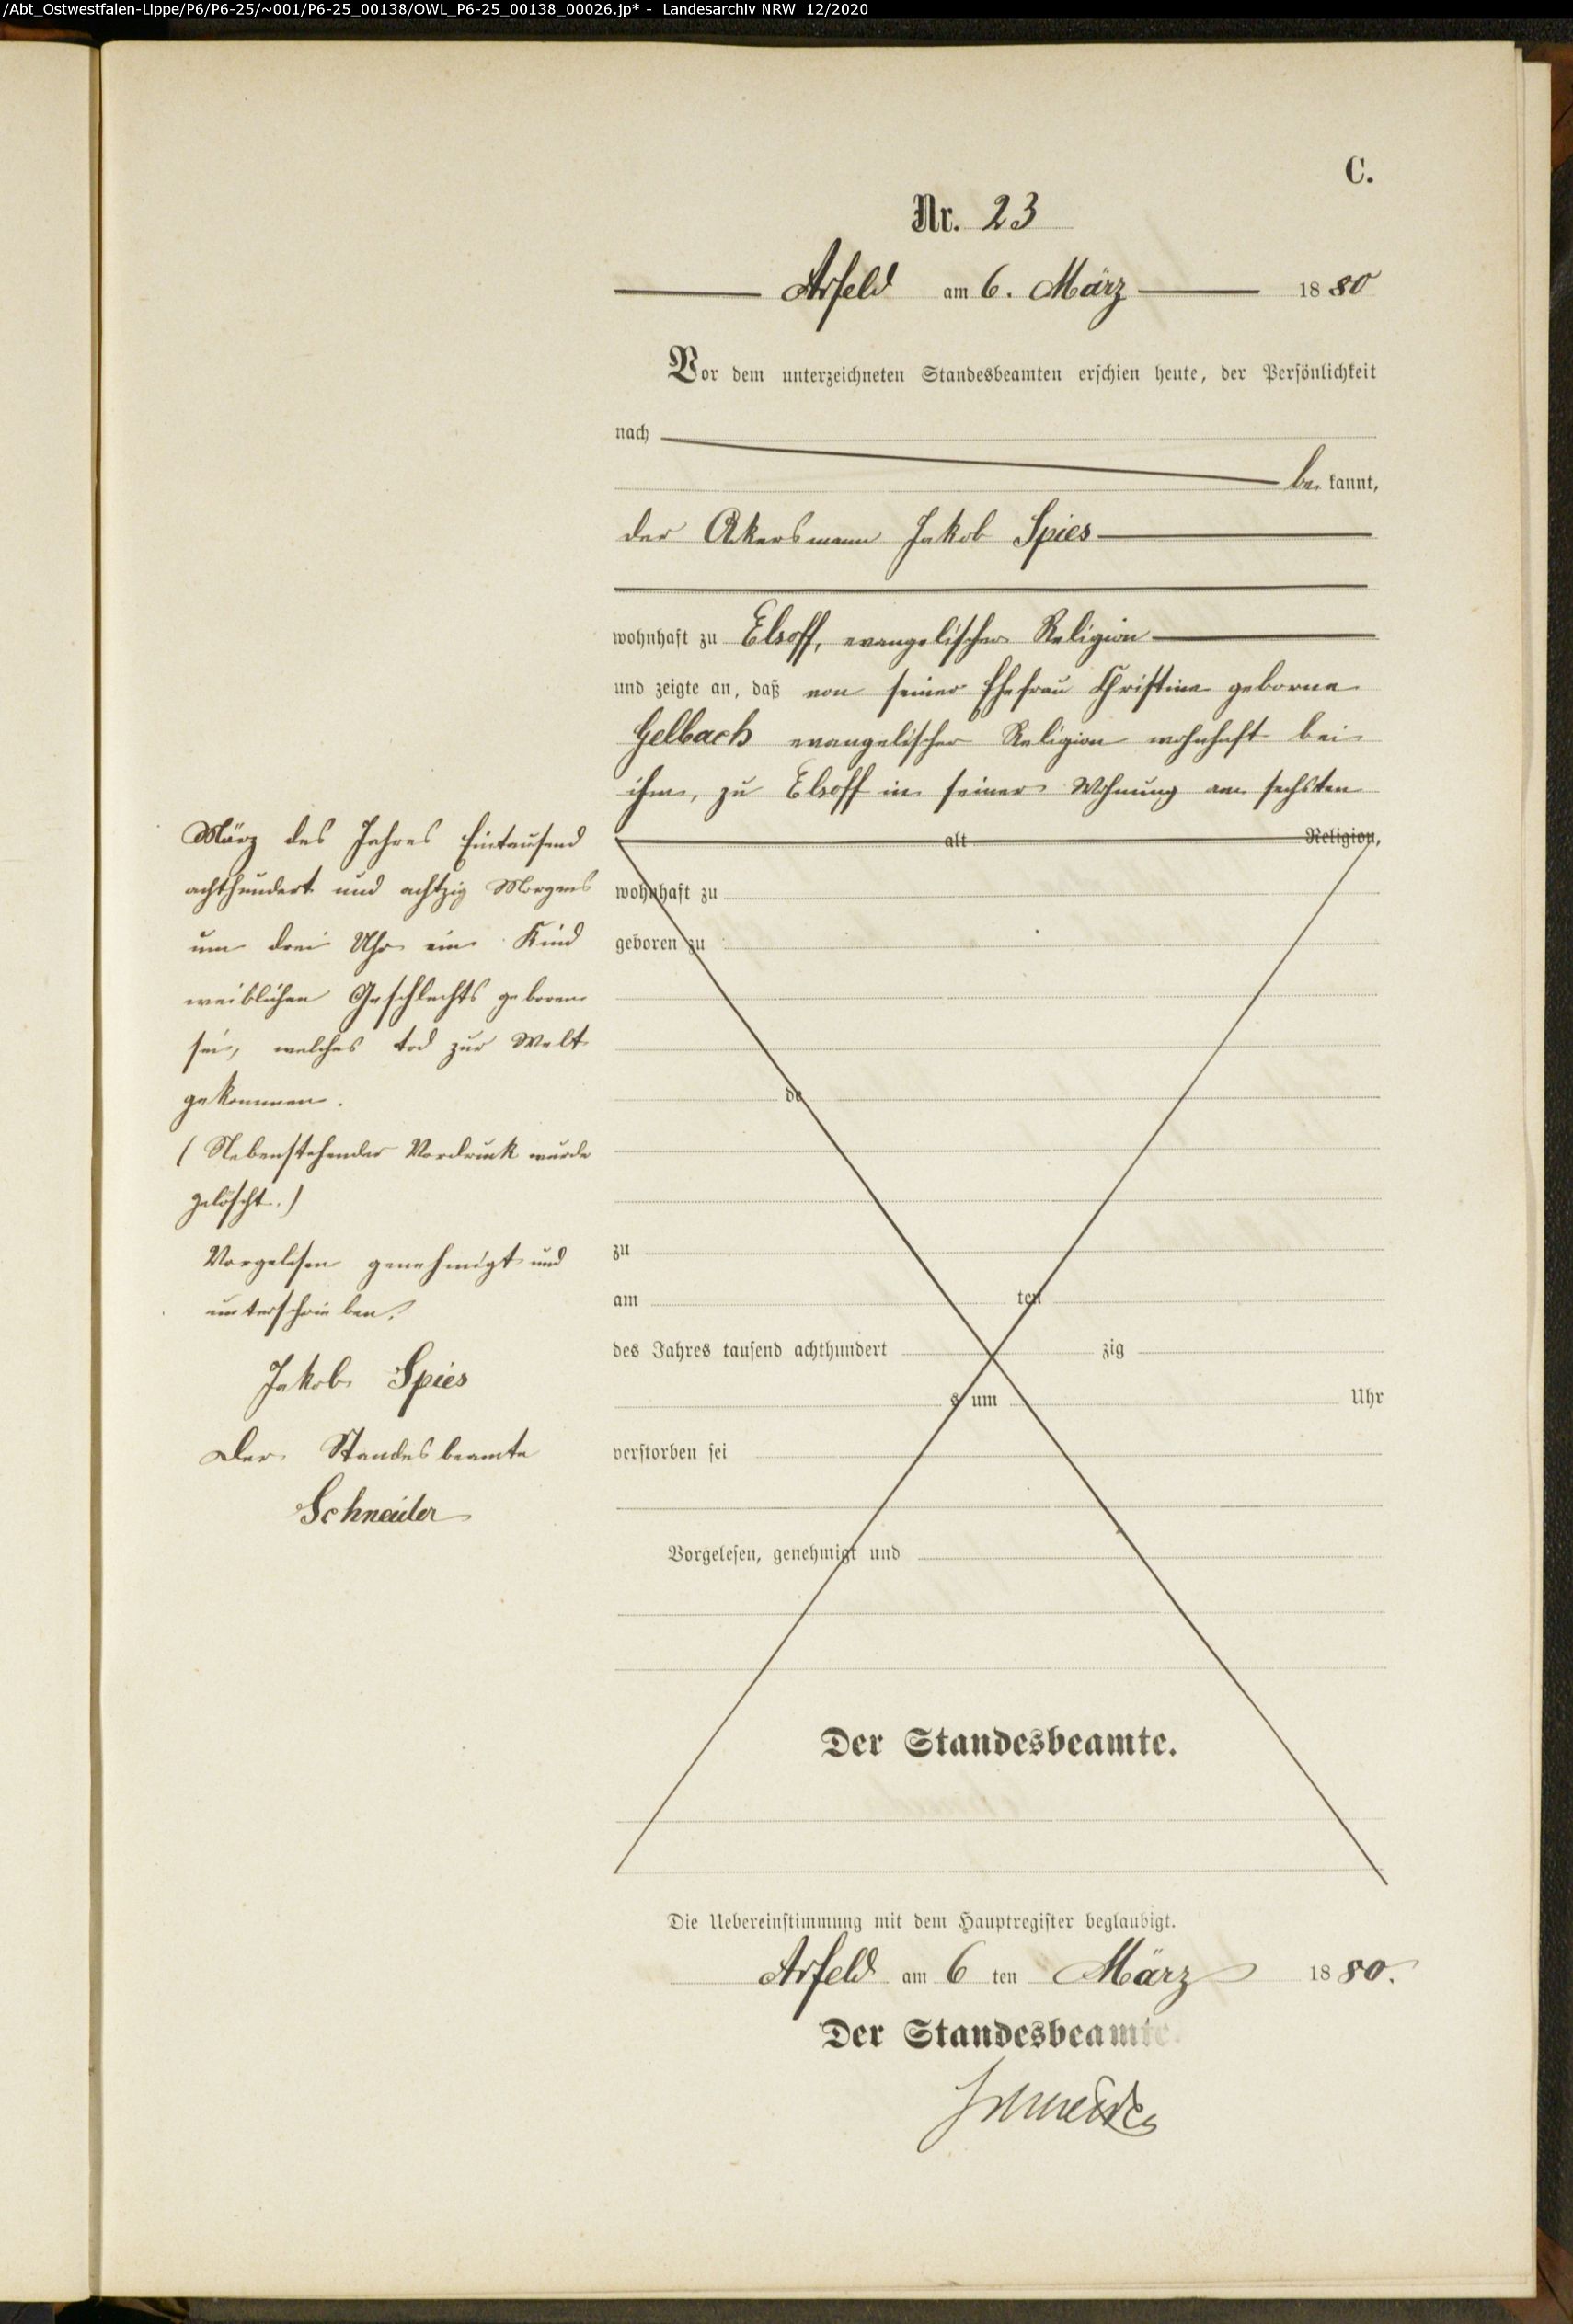 /Abt_Ostwestfalen-Lippe/P6/P6-25/~001/P6-25_00138/OWL_P6-25_00138_00026.jp* - Landesarchiv NRW 12/2020
C.
Nr. 23
Arfeld am 6. März 1880
Vor dem unterzeichneten Standesbeamten erschien heute, der Persönlichkeit
nach
be kannt,
der Akersmann Jakob Spies
wohnhaft zu Elsoff, evangelischer Religion
und zeigte an, daß von seiner Ehefrau Christine geborne
Gelbach evangelischer Religion wohnhaft bei
ihm, zu Elsoff in seiner Wohnung am sechsten
März des Jahres Eintausend
achthundert und achtzig Morgens
um drei Uhr ein Kind
weiblichen Geschlechts geboren
sei, welches tod zur Welt
gekommen.
(Nebenstehender Vordruck wurde
gelöscht.)
Vorgelesen genehmigt und
unterschrieben.
Jakob Spies
Der Standesbeamte
Schneider
alt Religion,
wohnhaft zu
geboren zu
de
zu
am ten
des Jahres tausend achthundert zig
s um Uhr
verstorben sei
Vorgelesen, genehmigt und
Der Standesbeamte.
Die Uebereinstimmung mit dem Hauptregister beglaubigt.
Arfeld am 6 ten März 1880.
Der Standesbeamte.
Schneider